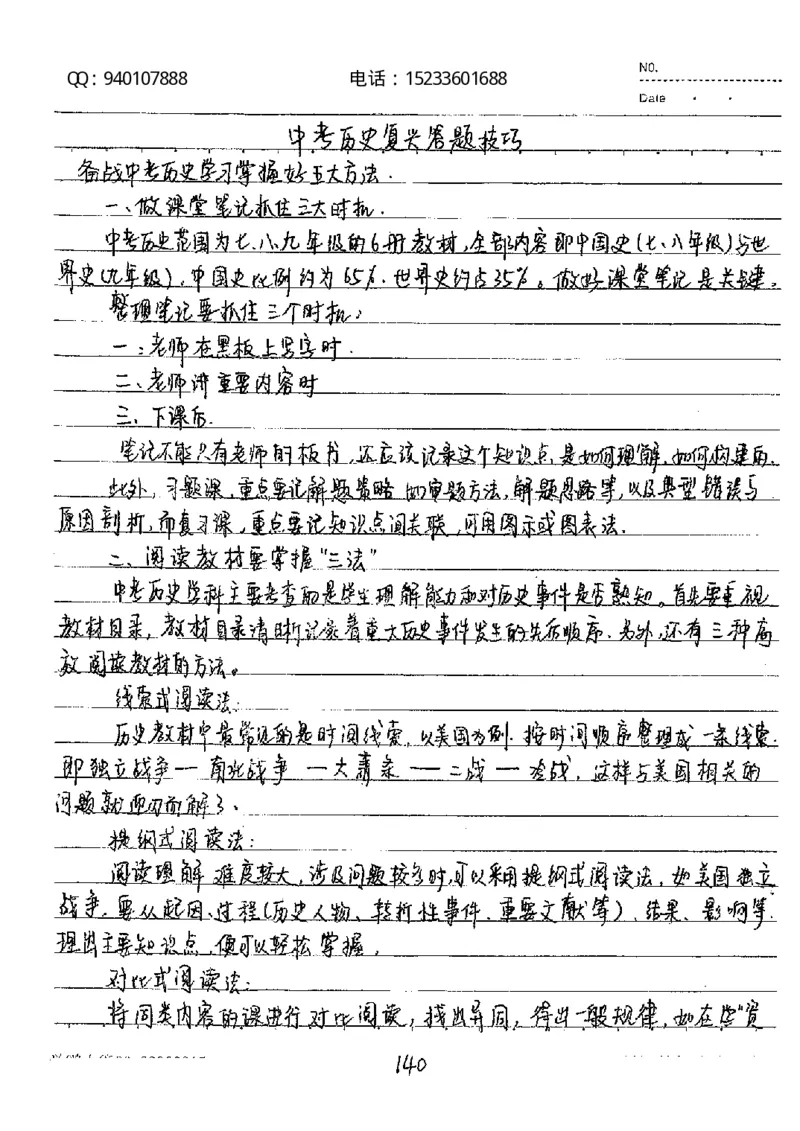 QQ：940107888 电话：15233601688 NO.
Date
中考历史复兴答题技巧
备战中考历史学习掌握好五大方法.
一、做课堂笔记抓住三大时机.
中考历史范围为七、八、九年级的6册教材,全部内容即中国史(七、八年级)与世
界史(九年级),中国史比例约为65%.世界史约占35%。做好课堂笔记是关键。
整理笔记要抓住三个时机:
一:老师在黑板上写字时.
二、老师讲重要内容时
三、下课后.
笔记不能只有老师的板书,还应该记录这个知识点,是如何理解,如何构建的.
此外,习题课,重点要记解题策略 如审题方法,解题思路等,以及典型错误与
原因剖析,而复习课,重点要记知识点间关联,可用图示或图表法.
二、阅读教材要掌握"三法"
中考历史学科主要考查的是学生理解能力和对历史事件是否熟知。首先要重视
教材目录,教材目录清晰记录着重大历史事件发生的先后顺序.另外,还有三种高
效阅读教材的方法。
线索式阅读法:
历史教材中最常见的是时间线索,以美国为例.按时间顺序整理成一条线索.
即独立战争—南北战争—大萧条—二战—冷战,这样与美国相关的
问题就迎刃而解了、
提纲式阅读法:
阅读理解难度较大,涉及问题较多时,可以采用提纲式阅读法,如美国独立
战争,要从起因、过程(历史人物、转折性事件、重要文献等)、结果、影响等.
理出主要知识点,便可以轻松掌握,
对比式阅读法:
将同类内容的课进行对比阅读,找出异同,得出一般规律,如在学"资
140